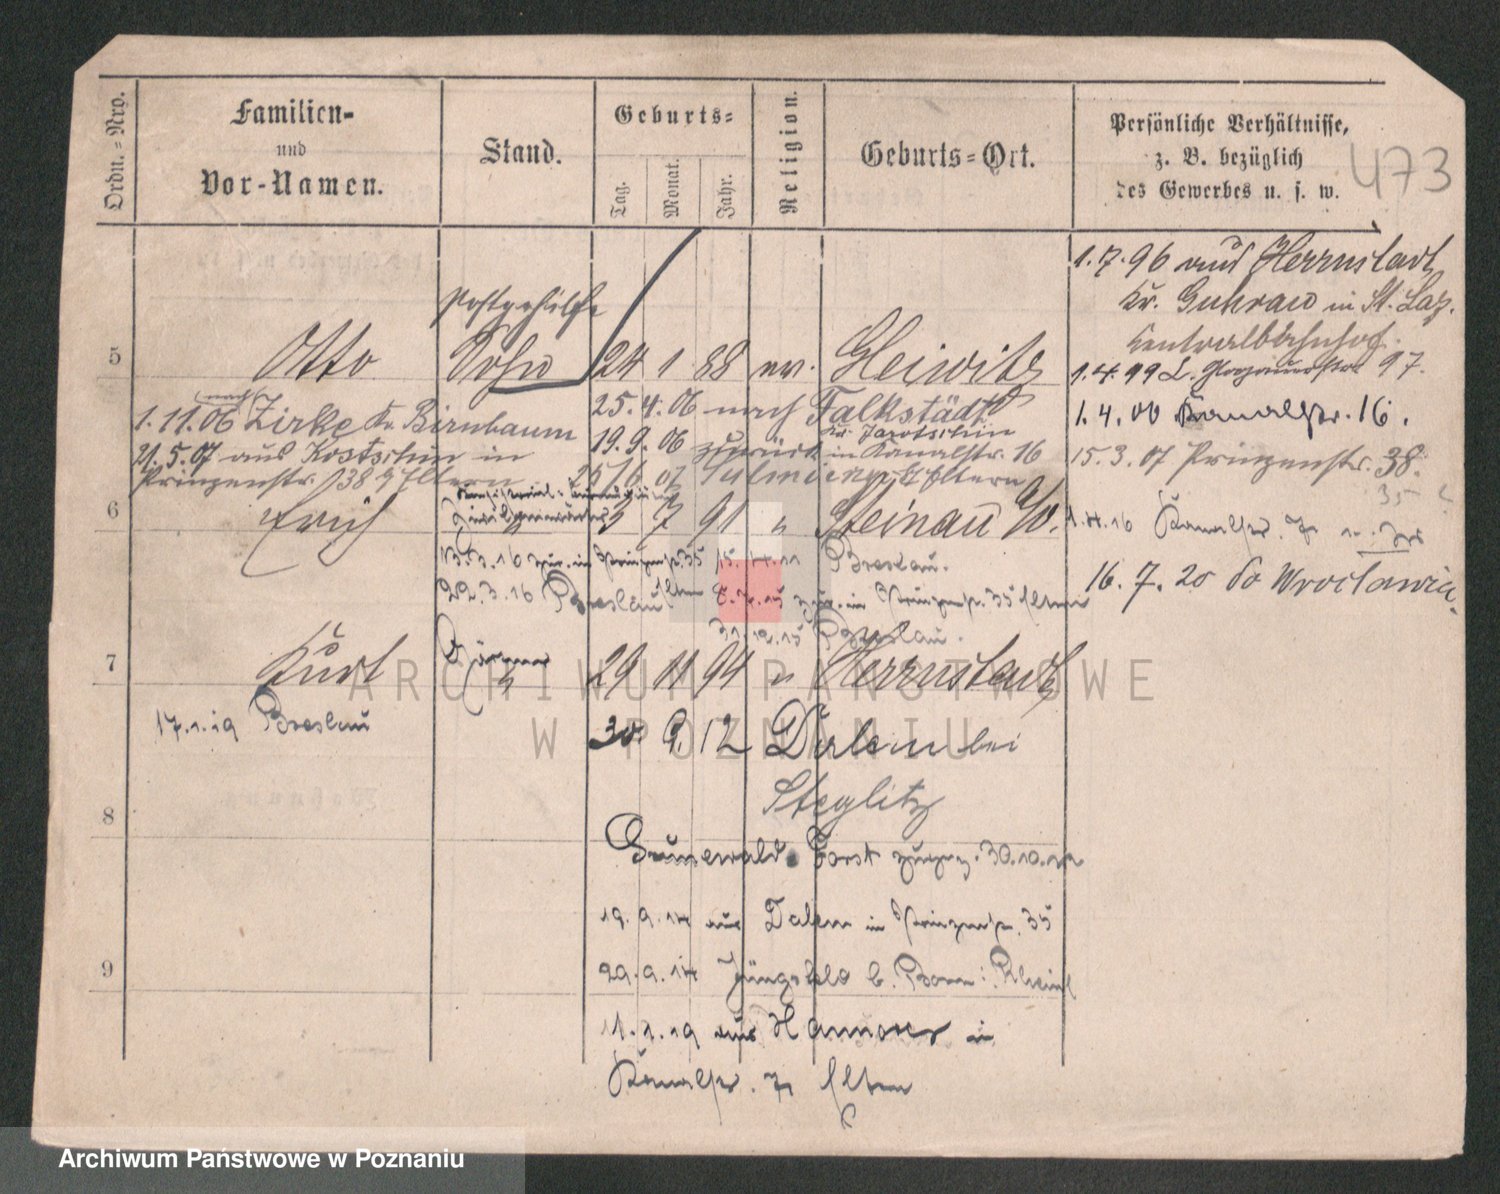 Ordn.=Nro.
Familien-
und
Vor-Namen.
Stand.
Geburts=
Tag.
Monat.
Jahr.
Religion.
Geburts=Ort.
Persönliche Verhältnisse,
z. B. bezüglich
des Gewerbes u. s. w.
473
1.7.96 aus Herrnstadt
Kr. Guhrau in St. Laz.
Centralbahnhof.
1.4.99 L. Glogauerstr. 97.
1.4.00 Kanalstr. 16.
15.3.07 Prinzenstr. 38.
35
1.4.16 Kanalstr. 7
16.7.20 do Wrocławia
5
Otto
Postgehülfe
Sohn
24 1 88 ev. Gleiwitz
nach
1.11.06 Zirke Kr. Birnbaum
21.5.07 aus Kostschin in
Prinzenstr. 38 z. Eltern
25.4.06 nach Falkstädt
Kr. Jarotschin
19.9.06 zurück in Kanalstr. 16
Eltern
6
Erich
3 7 91 " Steinau a/O.
13.3.16 zur. in Prinzenstr. 35
15.4.11 Breslau.
22.3.16 Breslau
zur. in Prinzenstr. 35 Eltern
31.12.15 Breslau.
7
Kurt
29 11 94 " Herrnstadt
17.1.19 Breslau
30. 9. 12 Dalem bei
Steglitz
8
Grunewald-Forst 30.10.12
19.9.14 aus Dalem in Prinzenstr. 35
9
29.9.14 b. Bonn : Rheinl
11.1.19 aus Hannover in
Kanalstr. 7 Eltern
ARCHIWUM PAŃSTWOWE
W POZNANIU
Archiwum Państwowe w Poznaniu